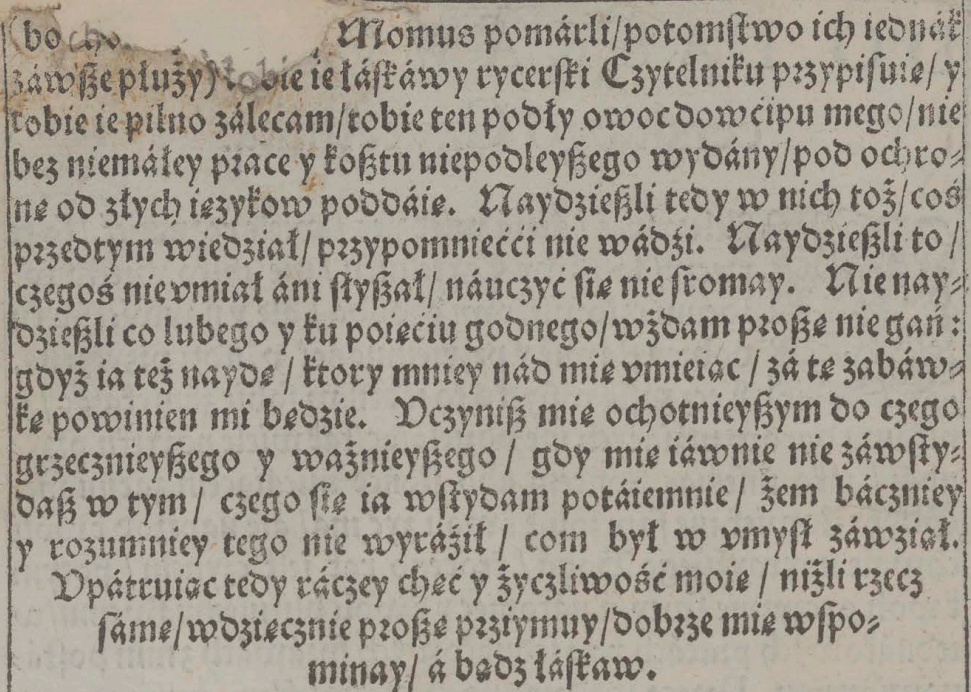 (bo cho. Momus pomárli/potomſtwo ich iednák
záwſze płuży) tobie ie łáſkáwy rycerſki Czytelniku przypiſuię/ y
tobie ie pilno zálecam/tobie ten podły owoc dowćipu mego/nie
bez niemáłey prace y koſztu niepodleyſzego wydány/pod ochro⸗
nę od złych ięzykow poddáię. Naydzieſzli tedy w nich toż/coś
przedtym wiedział/przypomniećći nie wádźi. Naydzieſzli to/
czegoś nie vmiał áni ſłyſzał/ náuczyć ſię nie ſromay. Nie nay⸗
dzieſzli co lubego y ku poięćiu godnego/wżdam proſzę nie gań:
gdyż ia też naydę / ktory mniey nád mię vmieiąc / zá tę zabáw⸗
kę powinien mi będzie. Vczyniſz mię ochotnieyſzym do czego
grzecznieyſzego y ważnieyſzego / gdy mię iáwnie nie záwſty⸗
daſz w tym/ czego ſię ia wſtydam potáiemnie/ żem báczniey
y rozumniey tego nie wyráźił / com był w vmyſł záwziął.
Vpátruiąc tedy ráczey chęć y życzliwość moię / niżli rzecz
ſámę/wdzięcznie proſzę przyimuy/dobrze mię wſpo⸗
minay/ á bądź łáſkaw.